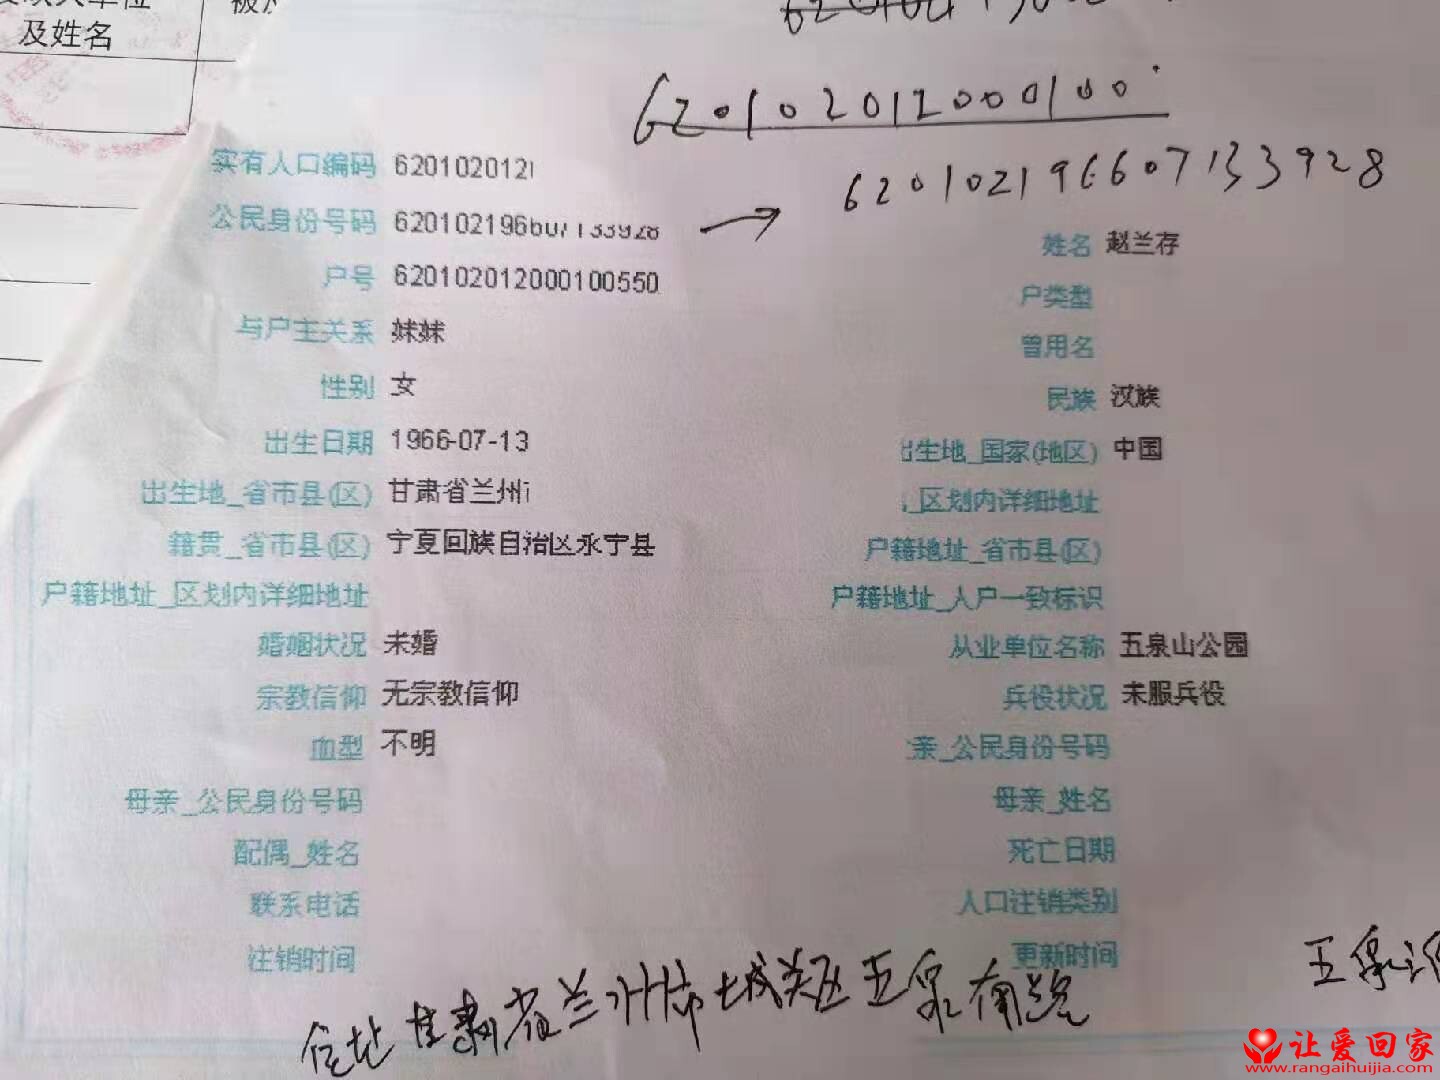 及姓名
620102012000100
620102196607133928
实有人口编码 620102012
公民身份号码 620102196607133928
姓名 赵兰存
户号 620102012000100550
户类型
与户主关系 妹妹
曾用名
性别 女
民族 汉族
出生日期 1966-07-13
出生地_国家(地区) 中国
出生地_省市县(区) 甘肃省兰州
区划内详细地址
籍贯_省市县(区) 宁夏回族自治区永宁县
户籍地址_省市县(区)
户籍地址_区划内详细地址
户籍地址_人户一致标识
婚姻状况 未婚
从业单位名称 五泉山公园
宗教信仰 无宗教信仰
兵役状况 未服兵役
血型 不明
亲_公民身份号码
母亲_公民身份号码
母亲_姓名
配偶_姓名
死亡日期
联系电话
人口注销类别
注销时间
更新时间
住址 甘肃省兰州市城关区五泉南
五泉
让爱回家
www.rangaihuijia.com